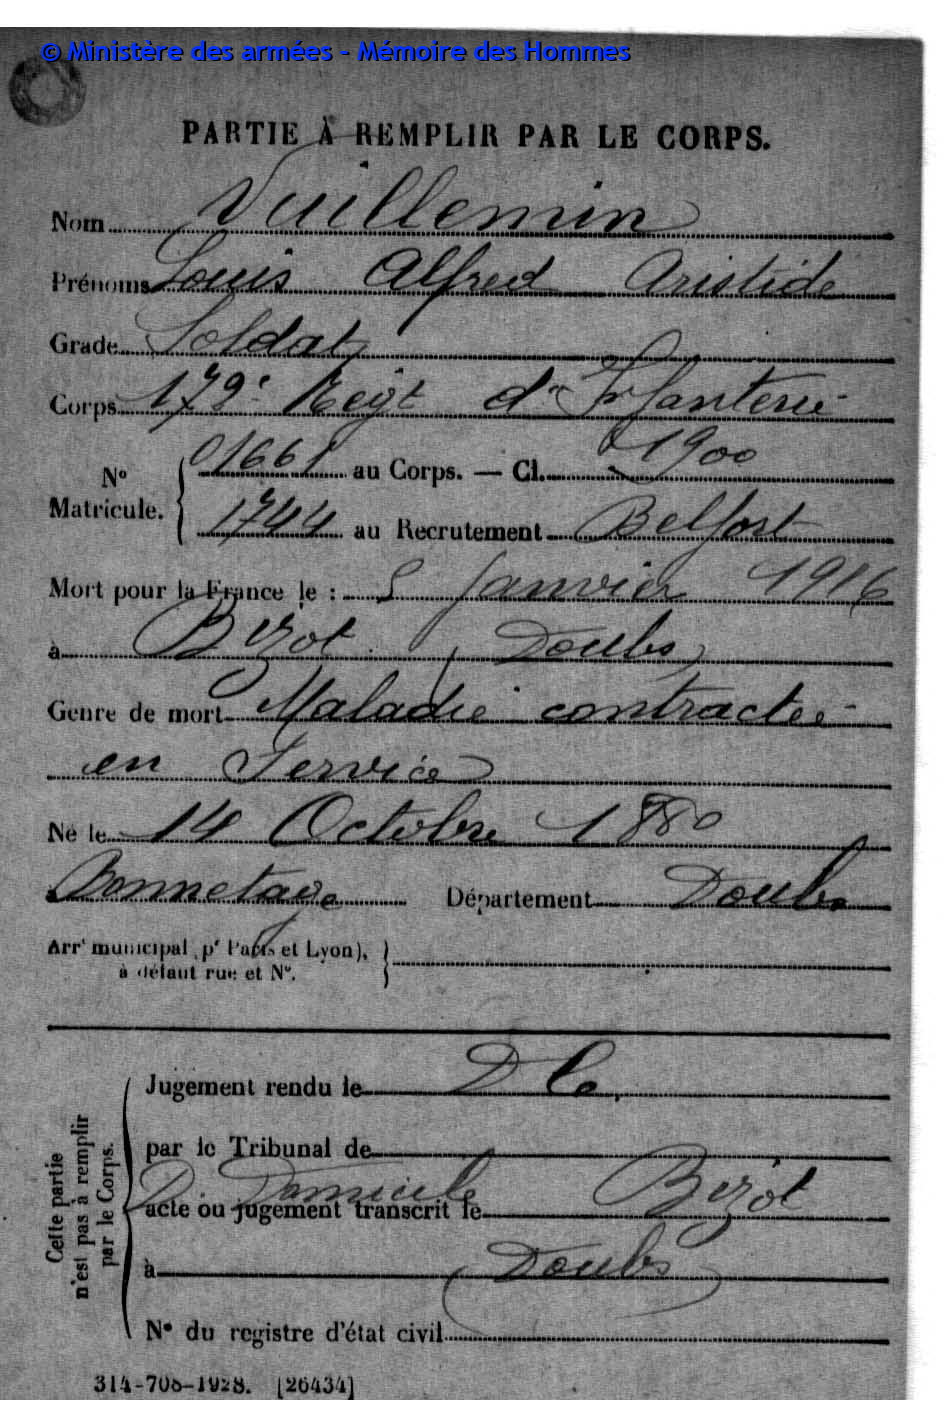 © Ministère des armées - Mémoire des Hommes
PARTIE À REMPLIR PAR LE CORPS.
Nom Vuillemin
Prénoms Louis Alfred Aristide
Grade Soldat
Corps 172e Regt d'Infanterie
No Matricule. 01661 au Corps. — Cl. 1900
1744 au Recrutement Belfort
Mort pour la France le : 5 Janvier 1916
à Bizot (Doubs)
Genre de mort Maladie contractée
en Service
Né le 14 Octobre 1880
Bonnetage Département Doubs
Arrt municipal (pr Paris et Lyon),
à défaut rue et No.
Cette partie n'est pas à remplir par le Corps.
Jugement rendu le
par le Tribunal de
D. Domicile Bizot
acte ou jugement transcrit le
à (Doubs)
No du registre d'état civil
314-708-1928. [26434]